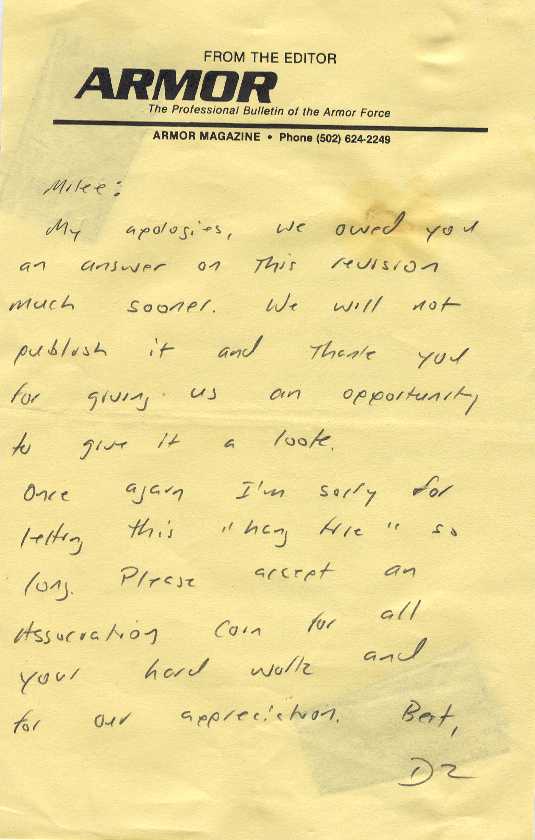 FROM THE EDITOR
ARMOR
The Professional Bulletin of the Armor Force
ARMOR MAGAZINE • Phone (502) 624-2249
Mike:
My apologies, we owed you
an answer on this revision
much sooner. We will not
publish it and thank you
for giving us an opportunity
to give it a look.
Once again I'm sorry for
letting this "hang fire" so
long. Please accept an
Association Coin for all
your hard work and
for our appreciation. Best,
DZ